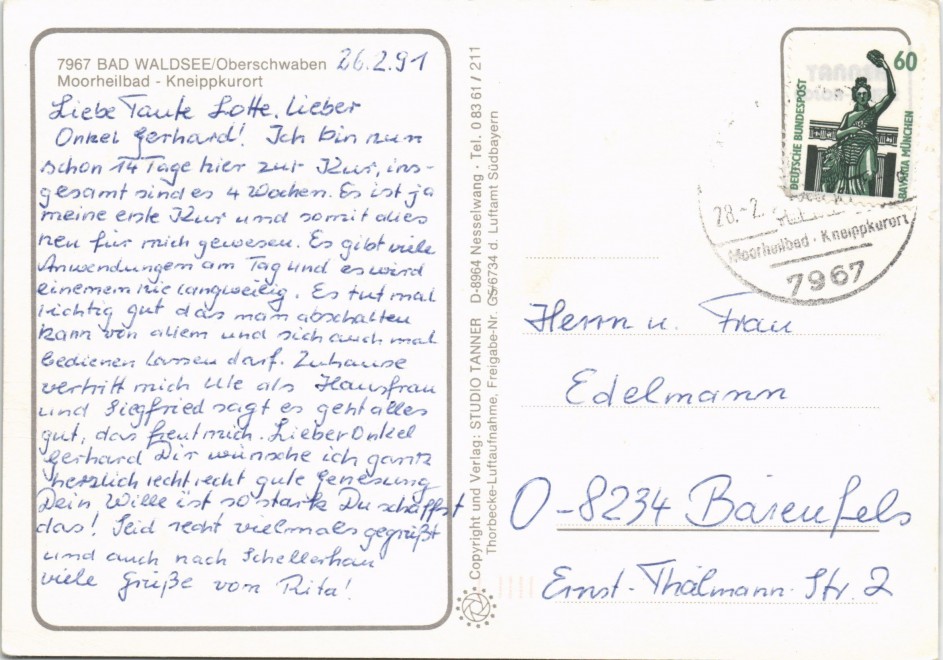 7967 BAD WALDSEE/Oberschwaben
Moorheilbad - Kneippkurort
26.2.91
Liebe Tante Lotte, Lieber
Onkel Gerhard! Ich bin nun
schon 14 Tage hier zur Kur, ins-
gesamt sind es 4 Wochen. Es ist ja
meine erste Kur und somit alles
neu für mich gewesen. Es gibt viele
Anwendungen am Tag und es wird
einem nie langweilig. Es tut mal
richtig gut das man abschalten
kann von allem und sich auch mal
bedienen lassen darf. Zuhause
vertritt mich Ute als Hausfrau
und Siegfried sagt es geht alles
gut, das freut mich. Lieber Onkel
Gerhard Dir wünsche ich ganz
herzlich recht recht gute Genesung
Dein Wille ist so stark Du schaffst
das! Seid recht vielmals gegrüßt
und auch nach Schellerhau
viele Grüße von Rita!
Copyright und Verlag: STUDIO TANNER D-8964 Nesselwang · Tel. 0 83 61 / 211
Thorbecke-Luftaufnahme, Freigabe-Nr. GS/6734 d. Luftamt Südbayern
60
DEUTSCHE BUNDESPOST
BAVARIA MÜNCHEN
28.-2.
Moorheilbad · Kneippkurort
7967
Herrn u. Frau
Edelmann
O-8234 Bärenfels
Ernst-Thälmann-Str. 2